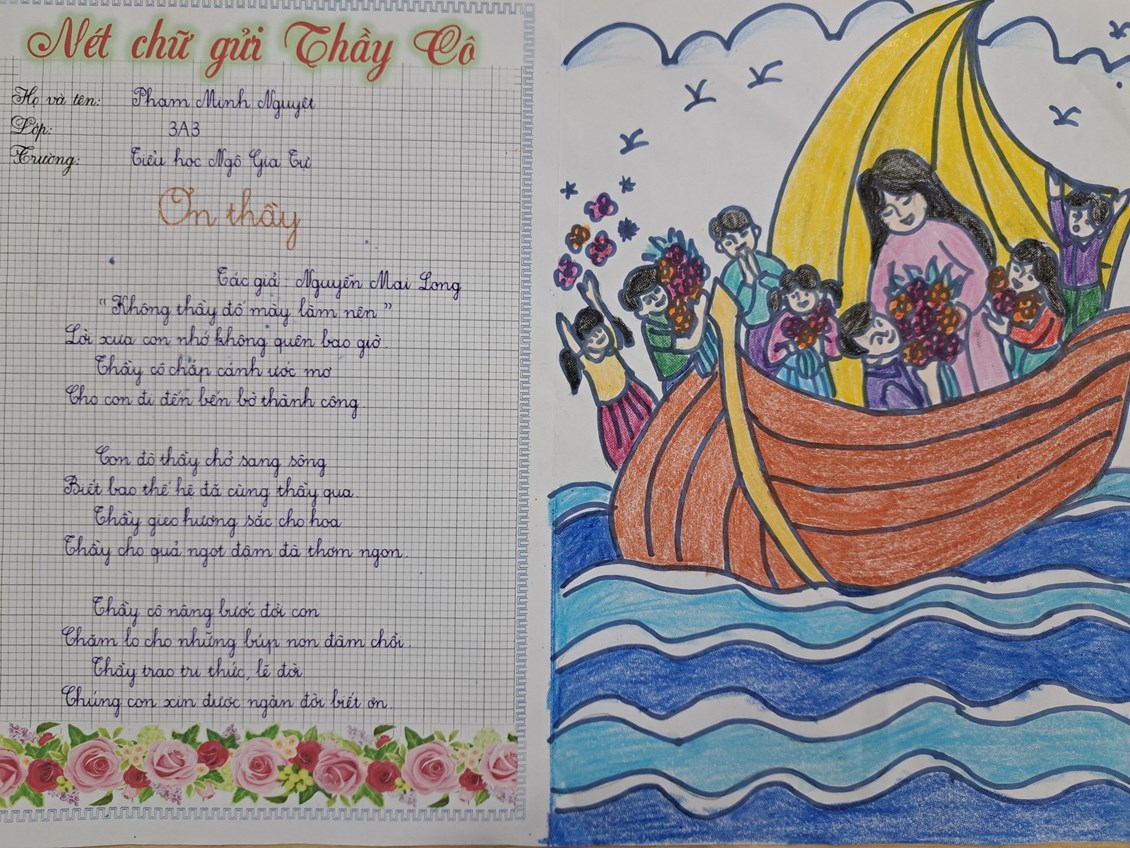 Nét chữ gửi Thầy Cô
Họ và tên: Phạm Minh Nguyệt
Lớp: 3A3
Trường: Tiểu học Ngô Gia Tự
Ơn thầy
Tác giả: Nguyễn Mai Long
"Không thầy đố mày làm nên"
Lời xưa con nhớ không quên bao giờ.
Thầy cô chắp cánh ước mơ
Cho con đi đến bến bờ thành công.
Con đò thầy chở sang sông
Biết bao thế hệ đã cùng thầy qua.
Thầy gieo hương sắc cho hoa
Thầy cho quả ngọt đậm đà thơm ngon.
Thầy cô nâng bước đời con
Chăm lo cho những búp non đâm chồi.
Thầy trao tri thức, lẽ đời
Chúng con xin được ngàn đời biết ơn.